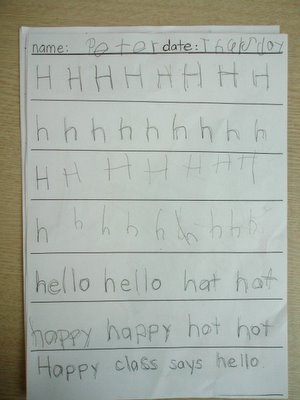 name: Peter date: Thursday
H H H H H H H H
h h h h h h h h h
H H H H H H H
h h h h h h h h
hello hello hat hat
happy happy hot hot
Happy class says hello.